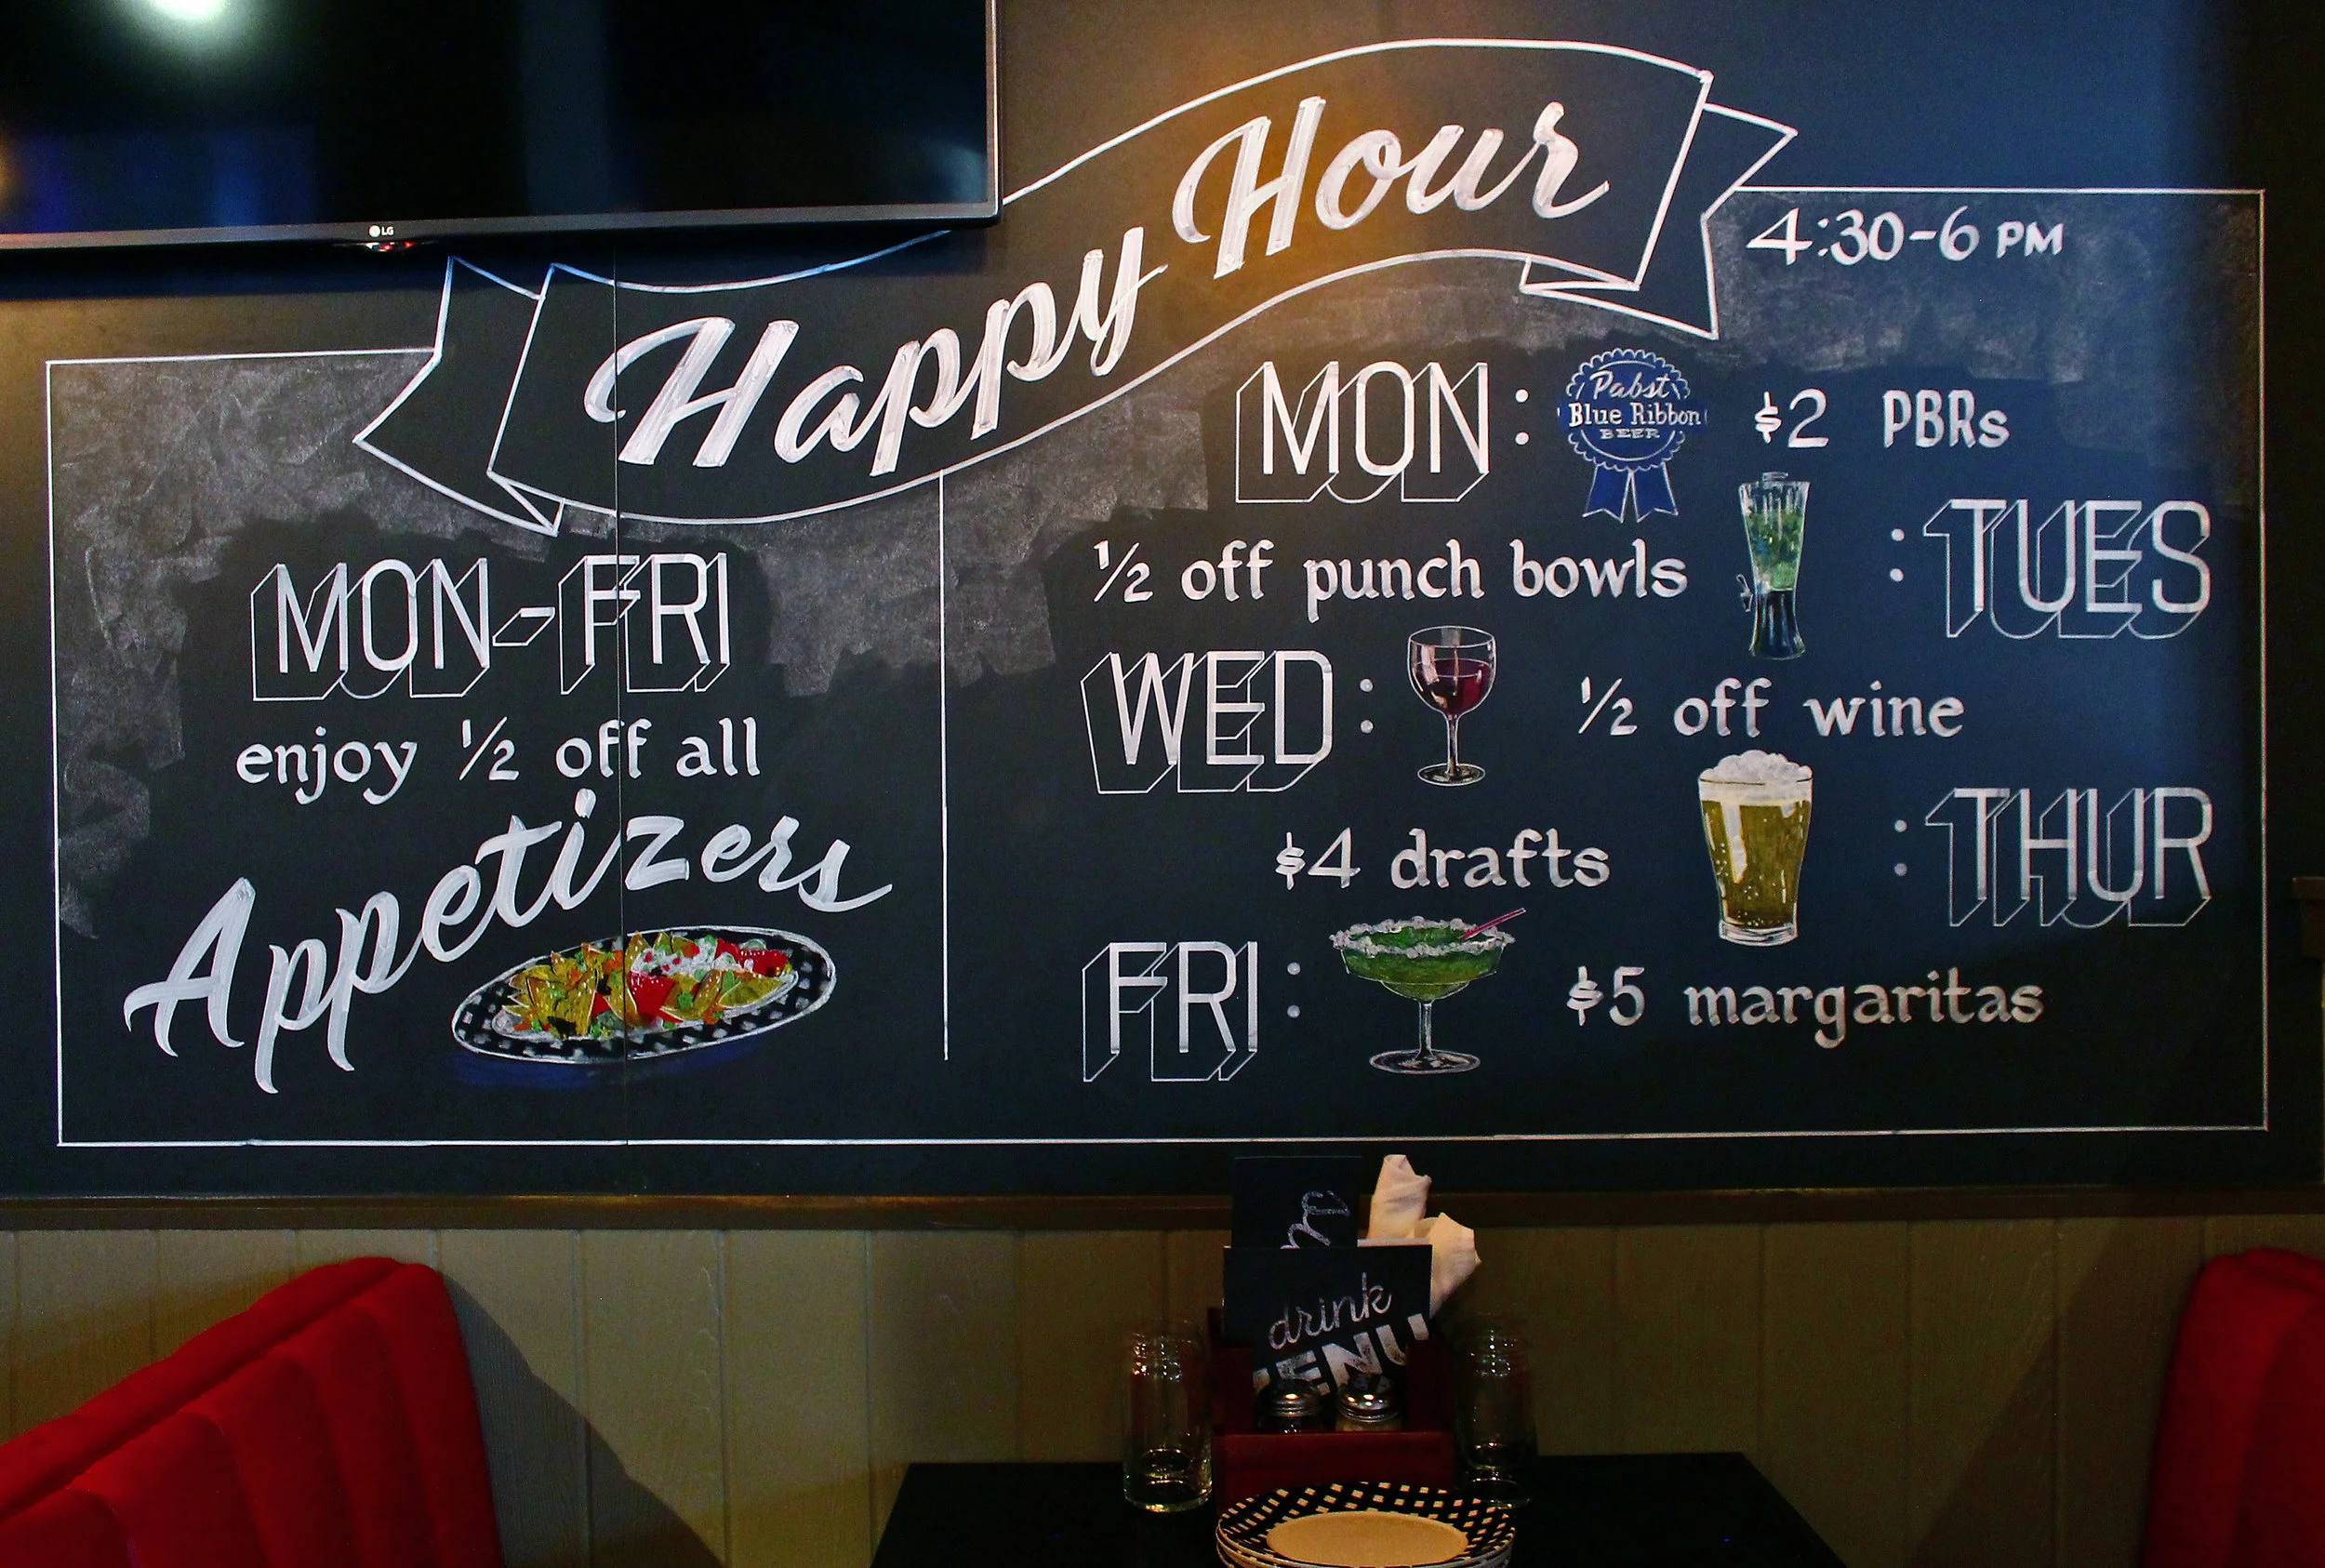 LG
Happy Hour
4:30-6 PM
MON-FRI
enjoy ½ off all
Appetizers
MON: Pabst Blue Ribbon BEER $2 PBRs
½ off punch bowls :TUES
WED: ½ off wine
$4 drafts :THUR
FRI: $5 margaritas
drink
MENU